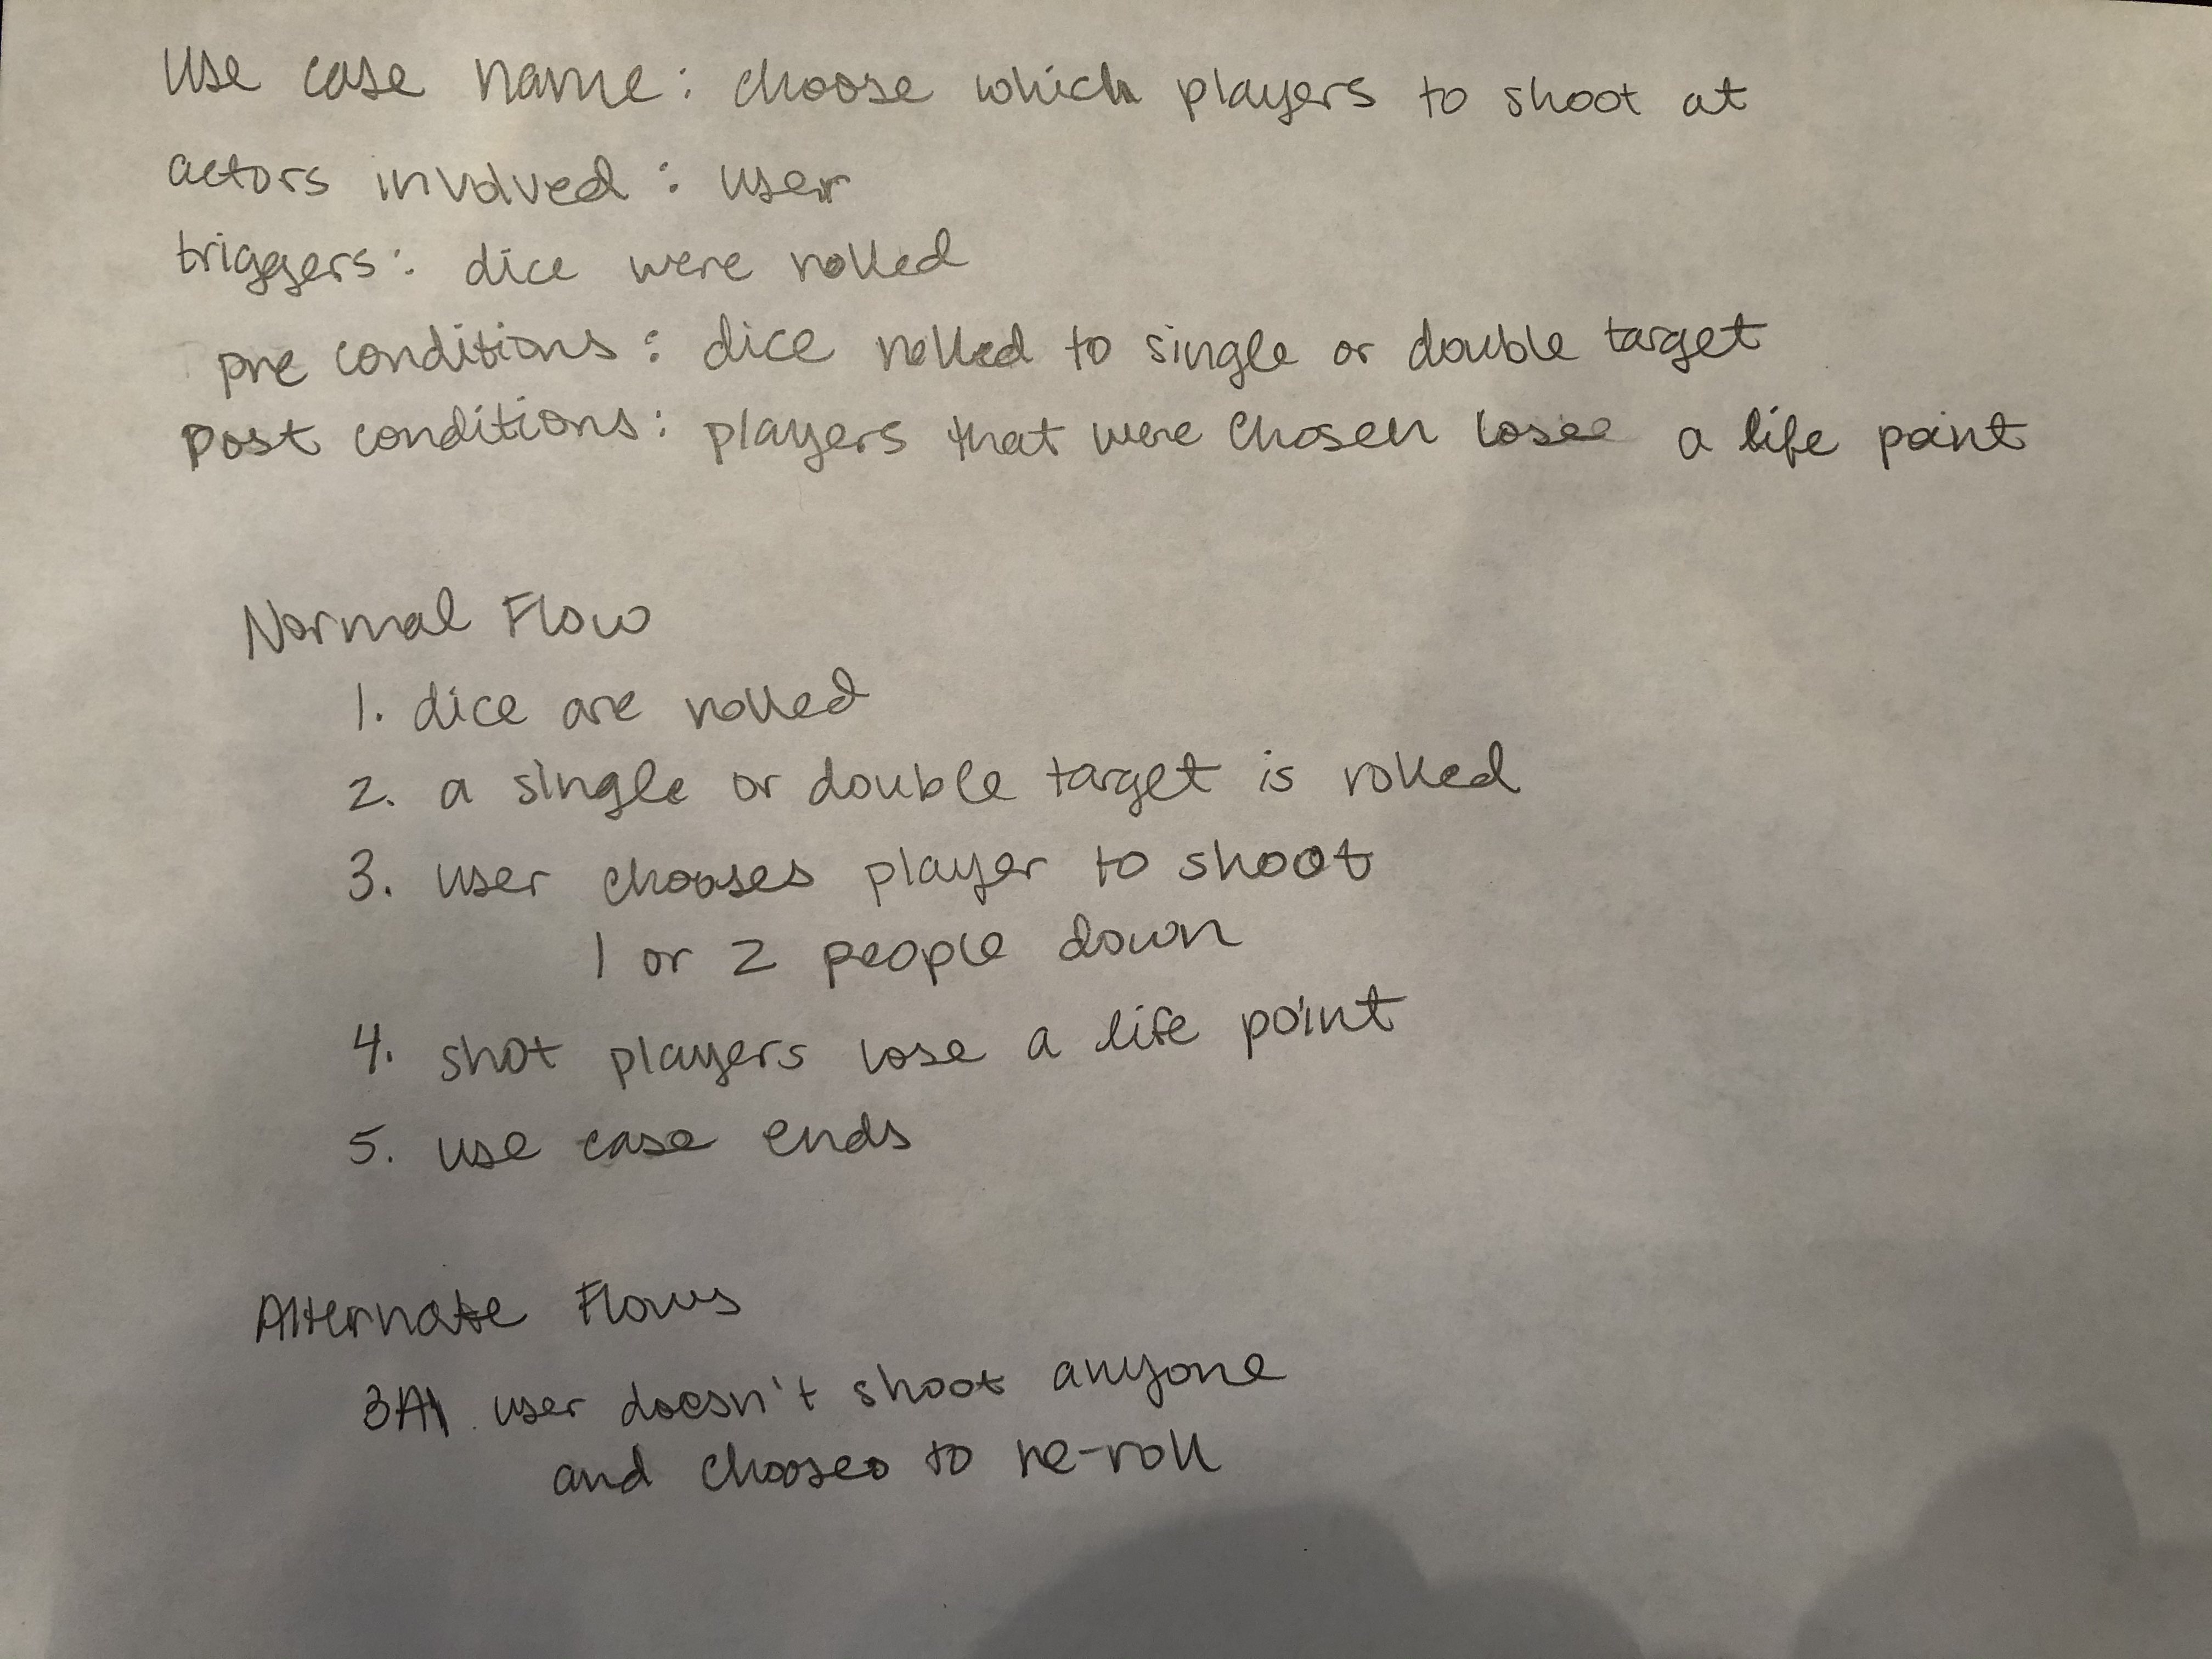 Use case name: choose which players to shoot at
actors involved: user
triggers: dice were rolled
pre conditions: dice rolled to single or double target
post conditions: players that were chosen lose a life point
Normal Flow
1. dice are rolled
2. a single or double target is rolled
3. user chooses player to shoot
1 or 2 people down
4. shot players lose a life point
5. use case ends
Alternate Flows
3A1. user doesn't shoot anyone
and chooses to re-roll